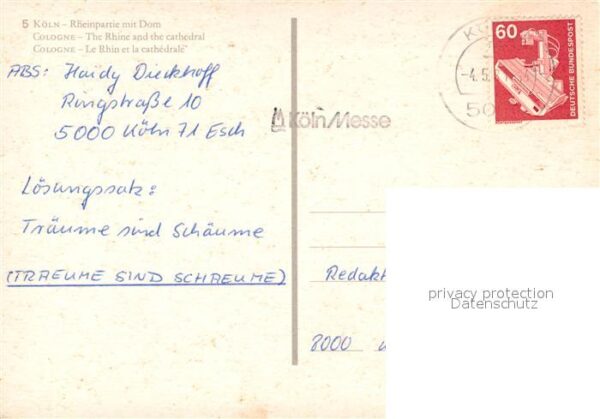 5 KÖLN – Rheinpartie mit Dom
COLOGNE – The Rhine and the cathedral
COLOGNE – Le Rhin et la cathédrale
ABS: Haidy Dieckhoff
Ringstraße 10
5000 Köln 71 Esch
Lösungssatz:
Träume sind Schäume
(TRAEUME SIND SCHAEUME)
60
DEUTSCHE BUNDESPOST
-4.5.
Köln Messe
Redakt
privacy protection
Datenschutz
8000